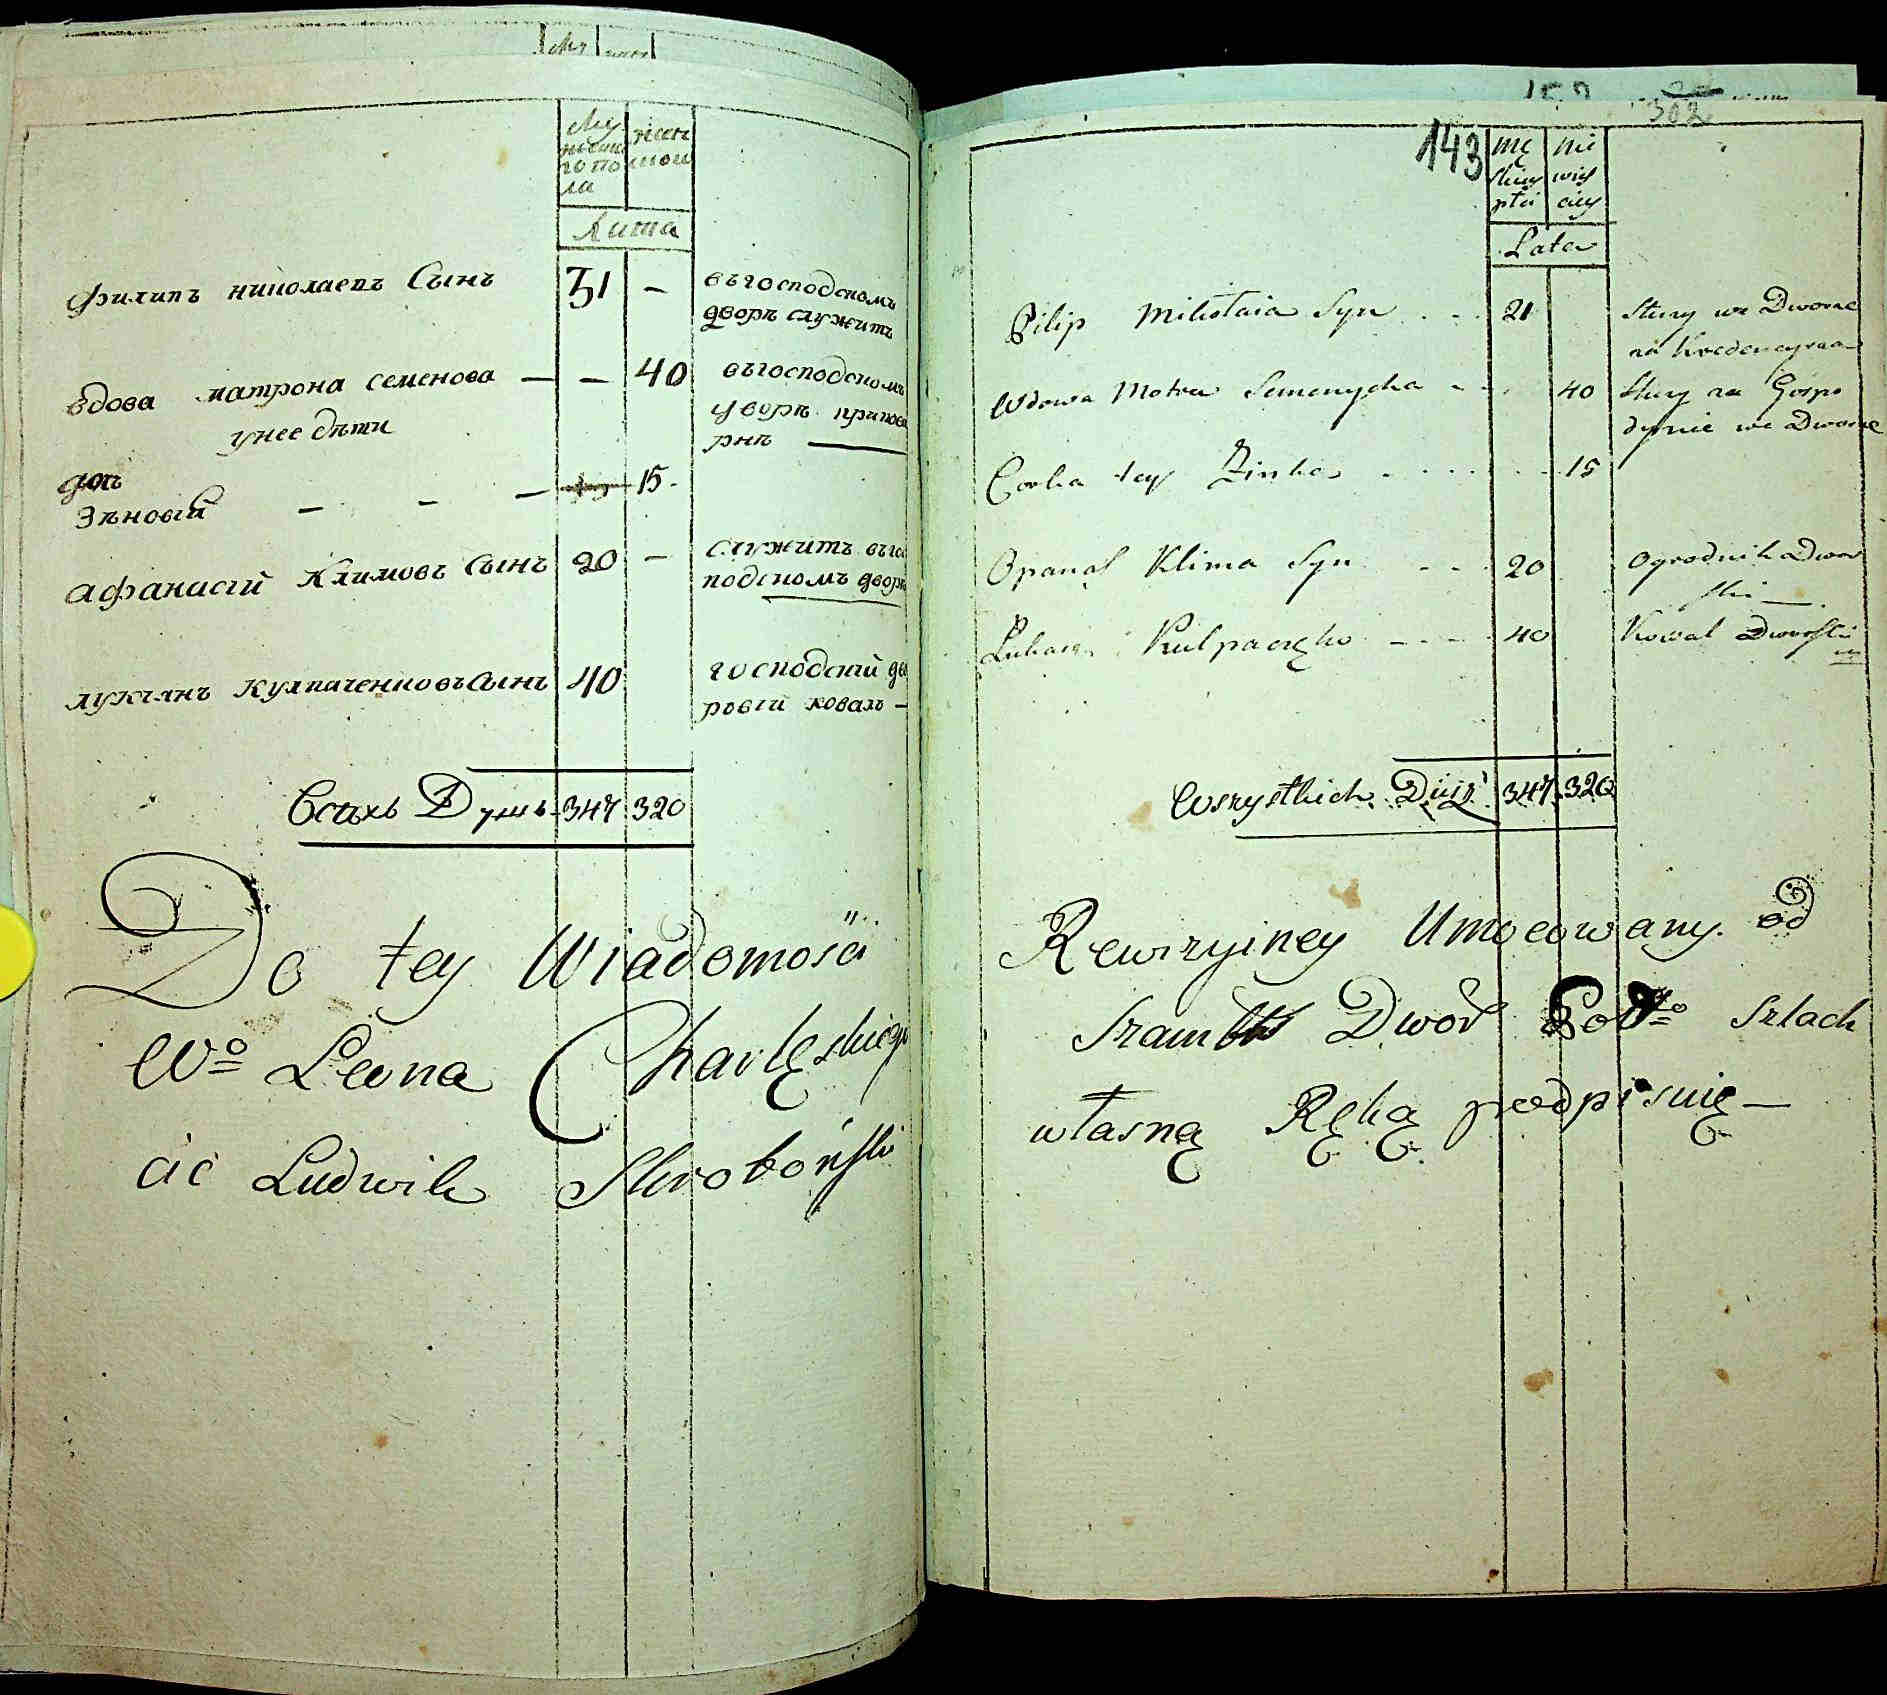 Му жеска го по ла
женс кои
Лѣта
Филипъ николаевъ Сынъ 31 — въгосподскомъ
дворѣ служитъ
вдова матрона семенова — — 40 въгосподскомъ
унее дѣти
дворѣ
дочь
Зѣновiй — — — 15
афанасiй Климовъ Сынъ 20 — служитъ въгос
подскомъ дворѣ
лукiянъ кулпаченковъ Сынъ 40 господскiй дво
ровiй коваль —
Всѣхъ Душъ 347 320
Do tey Wiadomośći
Wo Leona Charlęskiego
cic Ludwik Skroboński
302
143
mę skiey płci
nie wieś ciey
Lata
Filip Mikołaia Syn 21 Służy we Dworze
na Kredencyrza
Wdowa Motra Semenycha 40 Służy za Gospo
dynie we Dworze
Corka tey Zinka 15
Opanas Klima Syn 20 Ogrodnik Dwor
ski —
Łukasz Kulpaczęko 40 Kowal Dworski
Wszystkich Dusz 347 320
Rewizyiney Umocowany od
Dwor Szlach
własną Ręką podpisuię —